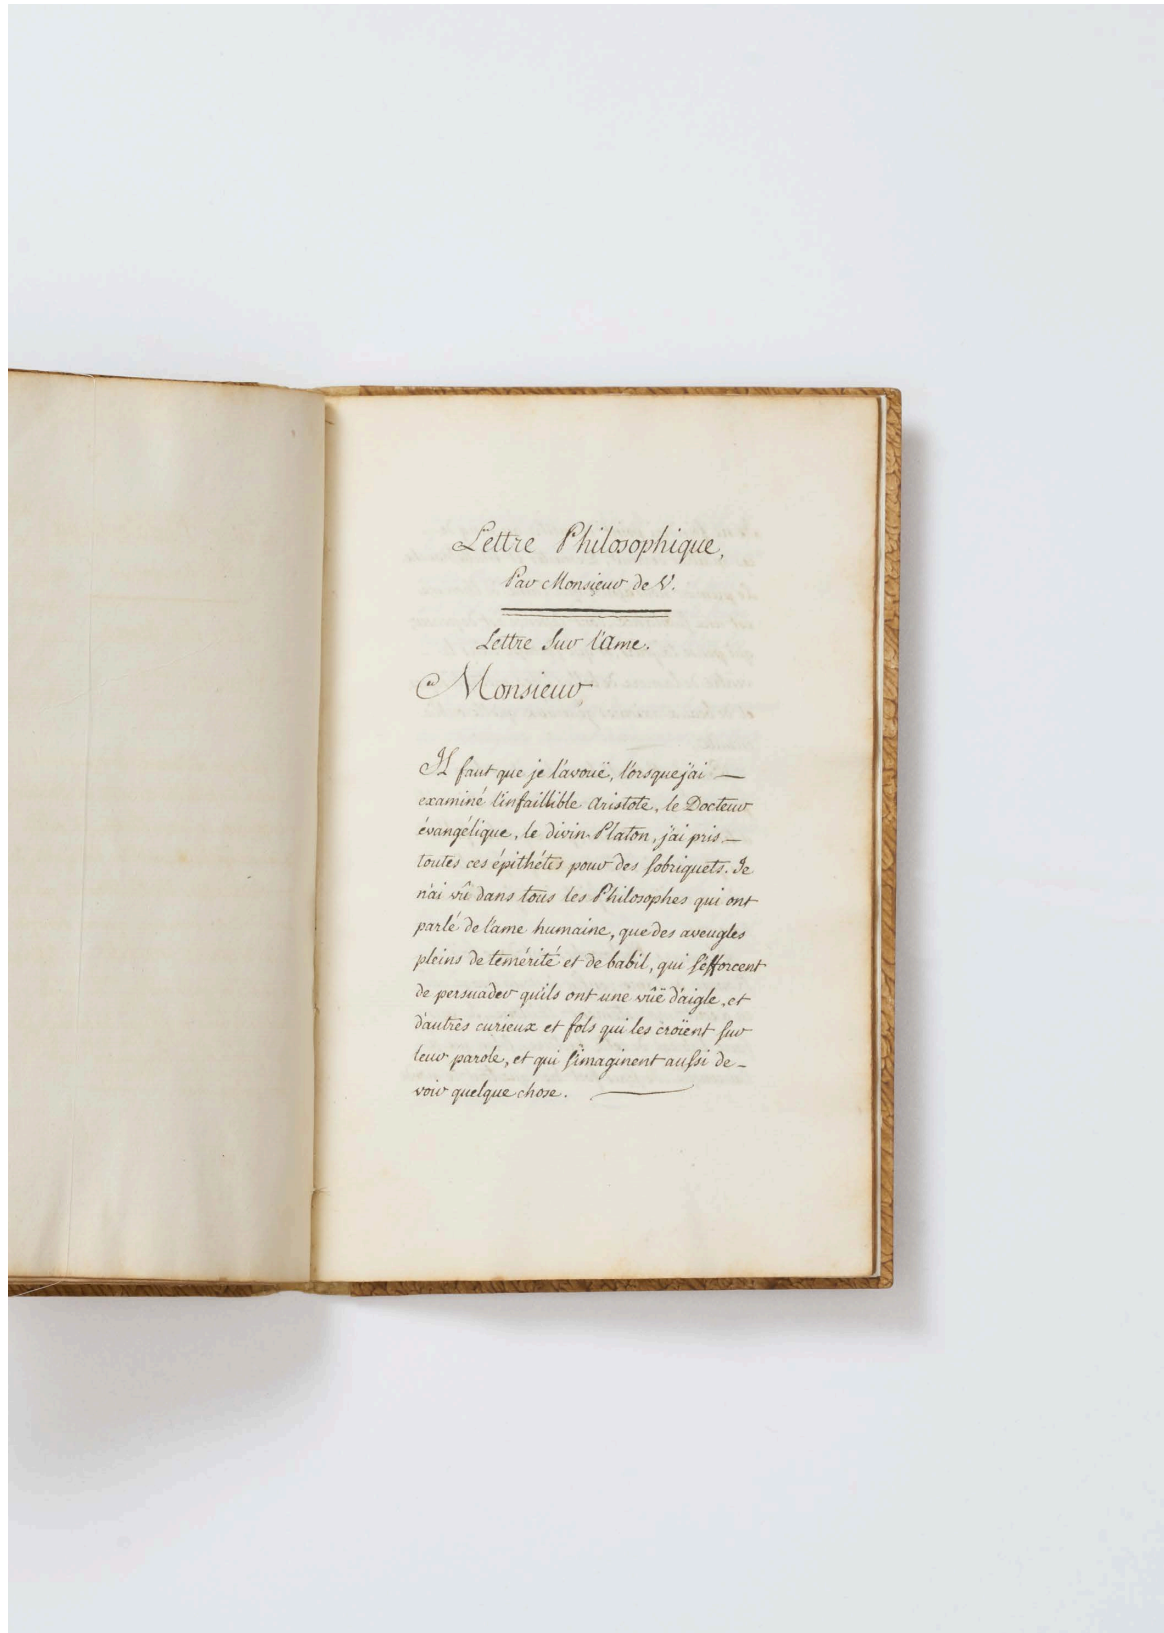 Lettre Philosophique,
Par Monsieur de V.
Lettre sur l'ame.
Monsieur,
Il faut que je l'avouë, lorsque j'ai —
examiné l'infaillible Aristote, le Docteur
évangélique, le divin Platon, j'ai pris —
toutes ces épithétes pour des sobriquets. Je
n'ai vû dans tous les Philosophes qui ont
parlé de l'ame humaine, que des aveugles
pleins de temérité et de babil, qui s'éfforcent
de persuader qu'ils ont une vûë d'aigle, et
d'autres curieux et fols qui les croïent sur
leur parole, et qui s'imaginent aussi de —
voir quelque chose. —